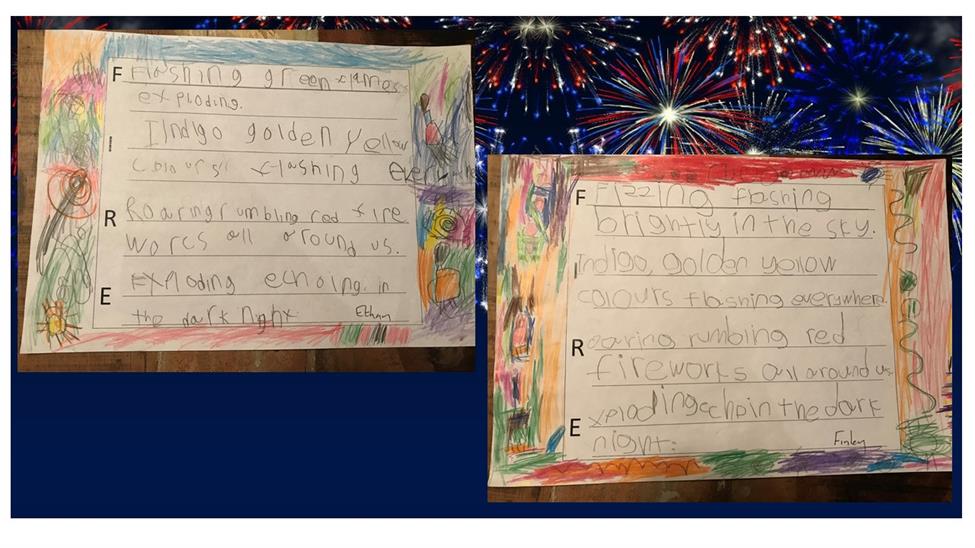 F Flashing green flames
exploding.
I Indigo golden yellow
colours flashing everywhere
R Roaring rumbling red fire
worcs all around us.
E Exploding echoing in
the dark night
Ethan
F Fizzing flashing
brightly in the sky.
Indigo golden yellow
colours flashing everywhere.
Roaring rumbing red
fireworks all around us
Exploding echo in the dark
night.
Finley